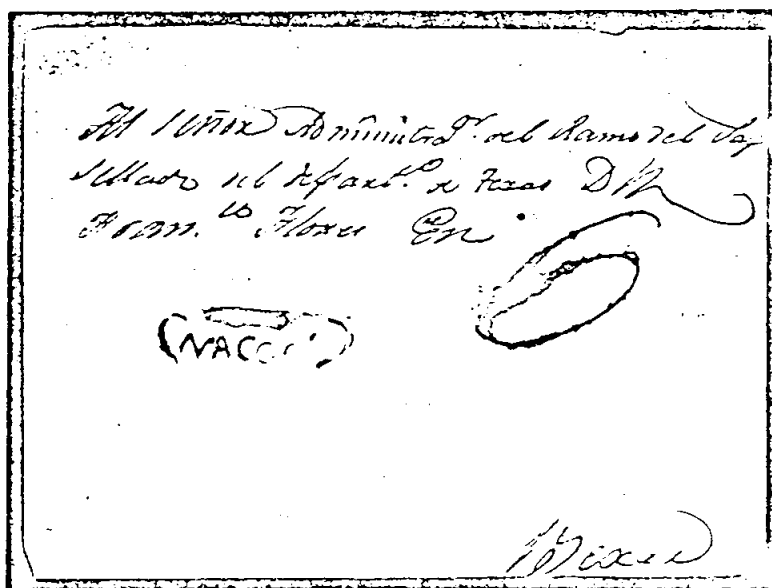 Al Señor Adminitrad.r del Ramo del Pap
Sellado del Depart.to de Texas D.n
Fran.co Flores En
NACO
6
Bixar